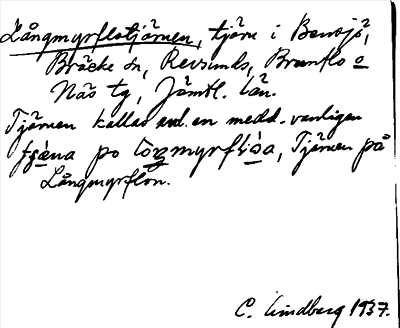 Långmyrflotjärnen, tjärn i Bensjö,
Bräcke sn, Revsunds, Brunflo o
Näs tg, Jämtl. län.
Tjärnen kallas enl. en medd. vanligen
på
Långmyrflon.
C. Lindberg 1937.